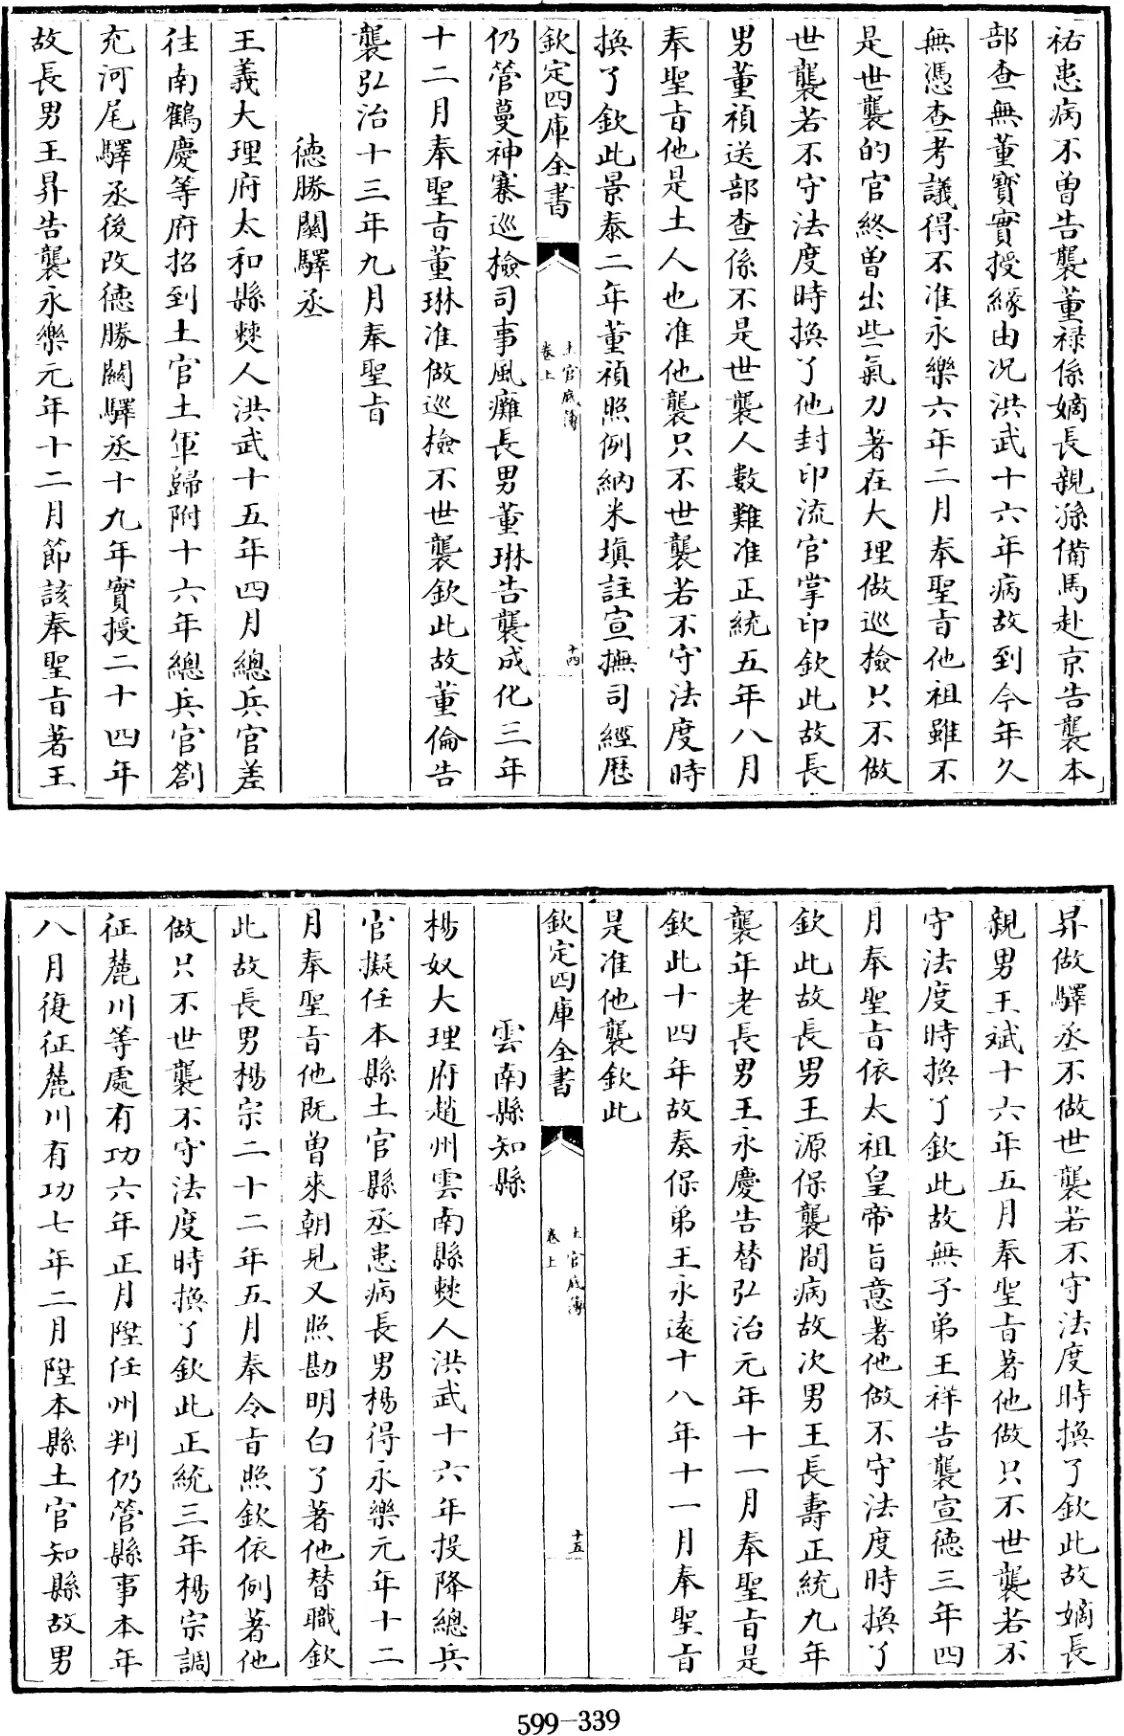 祐患病不曽告襲董禄係嫡長親孫備馬赴京告襲本
部查無董寶實授緣由况洪武十六年病故到今年久
無憑查考議得不准永樂六年二月奉聖旨他祖雖不
是世襲的官終曽出些氣力著在大理做巡檢只不做
世襲若不守法度時換了他封印流官掌印欽此故長
男董禎送部查係不是世襲人數難准正統五年八月
奉聖旨他是土人也准他襲只不世襲若不守法度時
換了欽此景泰二年董禎照例納米填註宣撫司經歷
欽定四庫全書
土官底簿
卷上
十四
仍管蔓神寨巡檢司事風癱長男董琳告襲成化三年
十二月奉聖旨董琳准做巡檢不世襲欽此故董倫告
襲弘治十三年九月奉聖旨
德勝關驛丞
王義大理府太和縣僰人洪武十五年四月總兵官差
往南鶴慶等府招到土官土軍歸附十六年總兵官劄
充河尾驛丞後改德勝關驛丞十九年實授二十四年
故長男王昇告襲永樂元年十二月節該奉聖旨著王
昇做驛丞不做世襲若不守法度時換了欽此故嫡長
親男王斌十六年五月奉聖旨著他做只不世襲若不
守法度時換了欽此故無子弟王祥告襲宣德三年四
月奉聖旨依太祖皇帝旨意著他做不守法度時換了
欽此故長男王源保襲間病故次男王長壽正統九年
襲年老長男王永慶告替弘治元年十一月奉聖旨是
欽此十四年故奏保弟王永遠十八年十一月奉聖旨
是准他襲欽此
欽定四庫全書
土官底簿
卷上
十五
雲南縣知縣
楊奴大理府趙州雲南縣僰人洪武十六年投降總兵
官擬任本縣土官縣丞患病長男楊得永樂元年十二
月奉聖旨他既曽來朝見又照勘明白了著他替職欽
此故長男楊宗二十二年五月奉令旨照欽依例著他
做只不世襲不守法度時換了欽此正統三年楊宗調
征麓川等處有功六年正月陞任州判仍管縣事本年
八月復征麓川有功七年二月陞本縣土官知縣故男
599-339